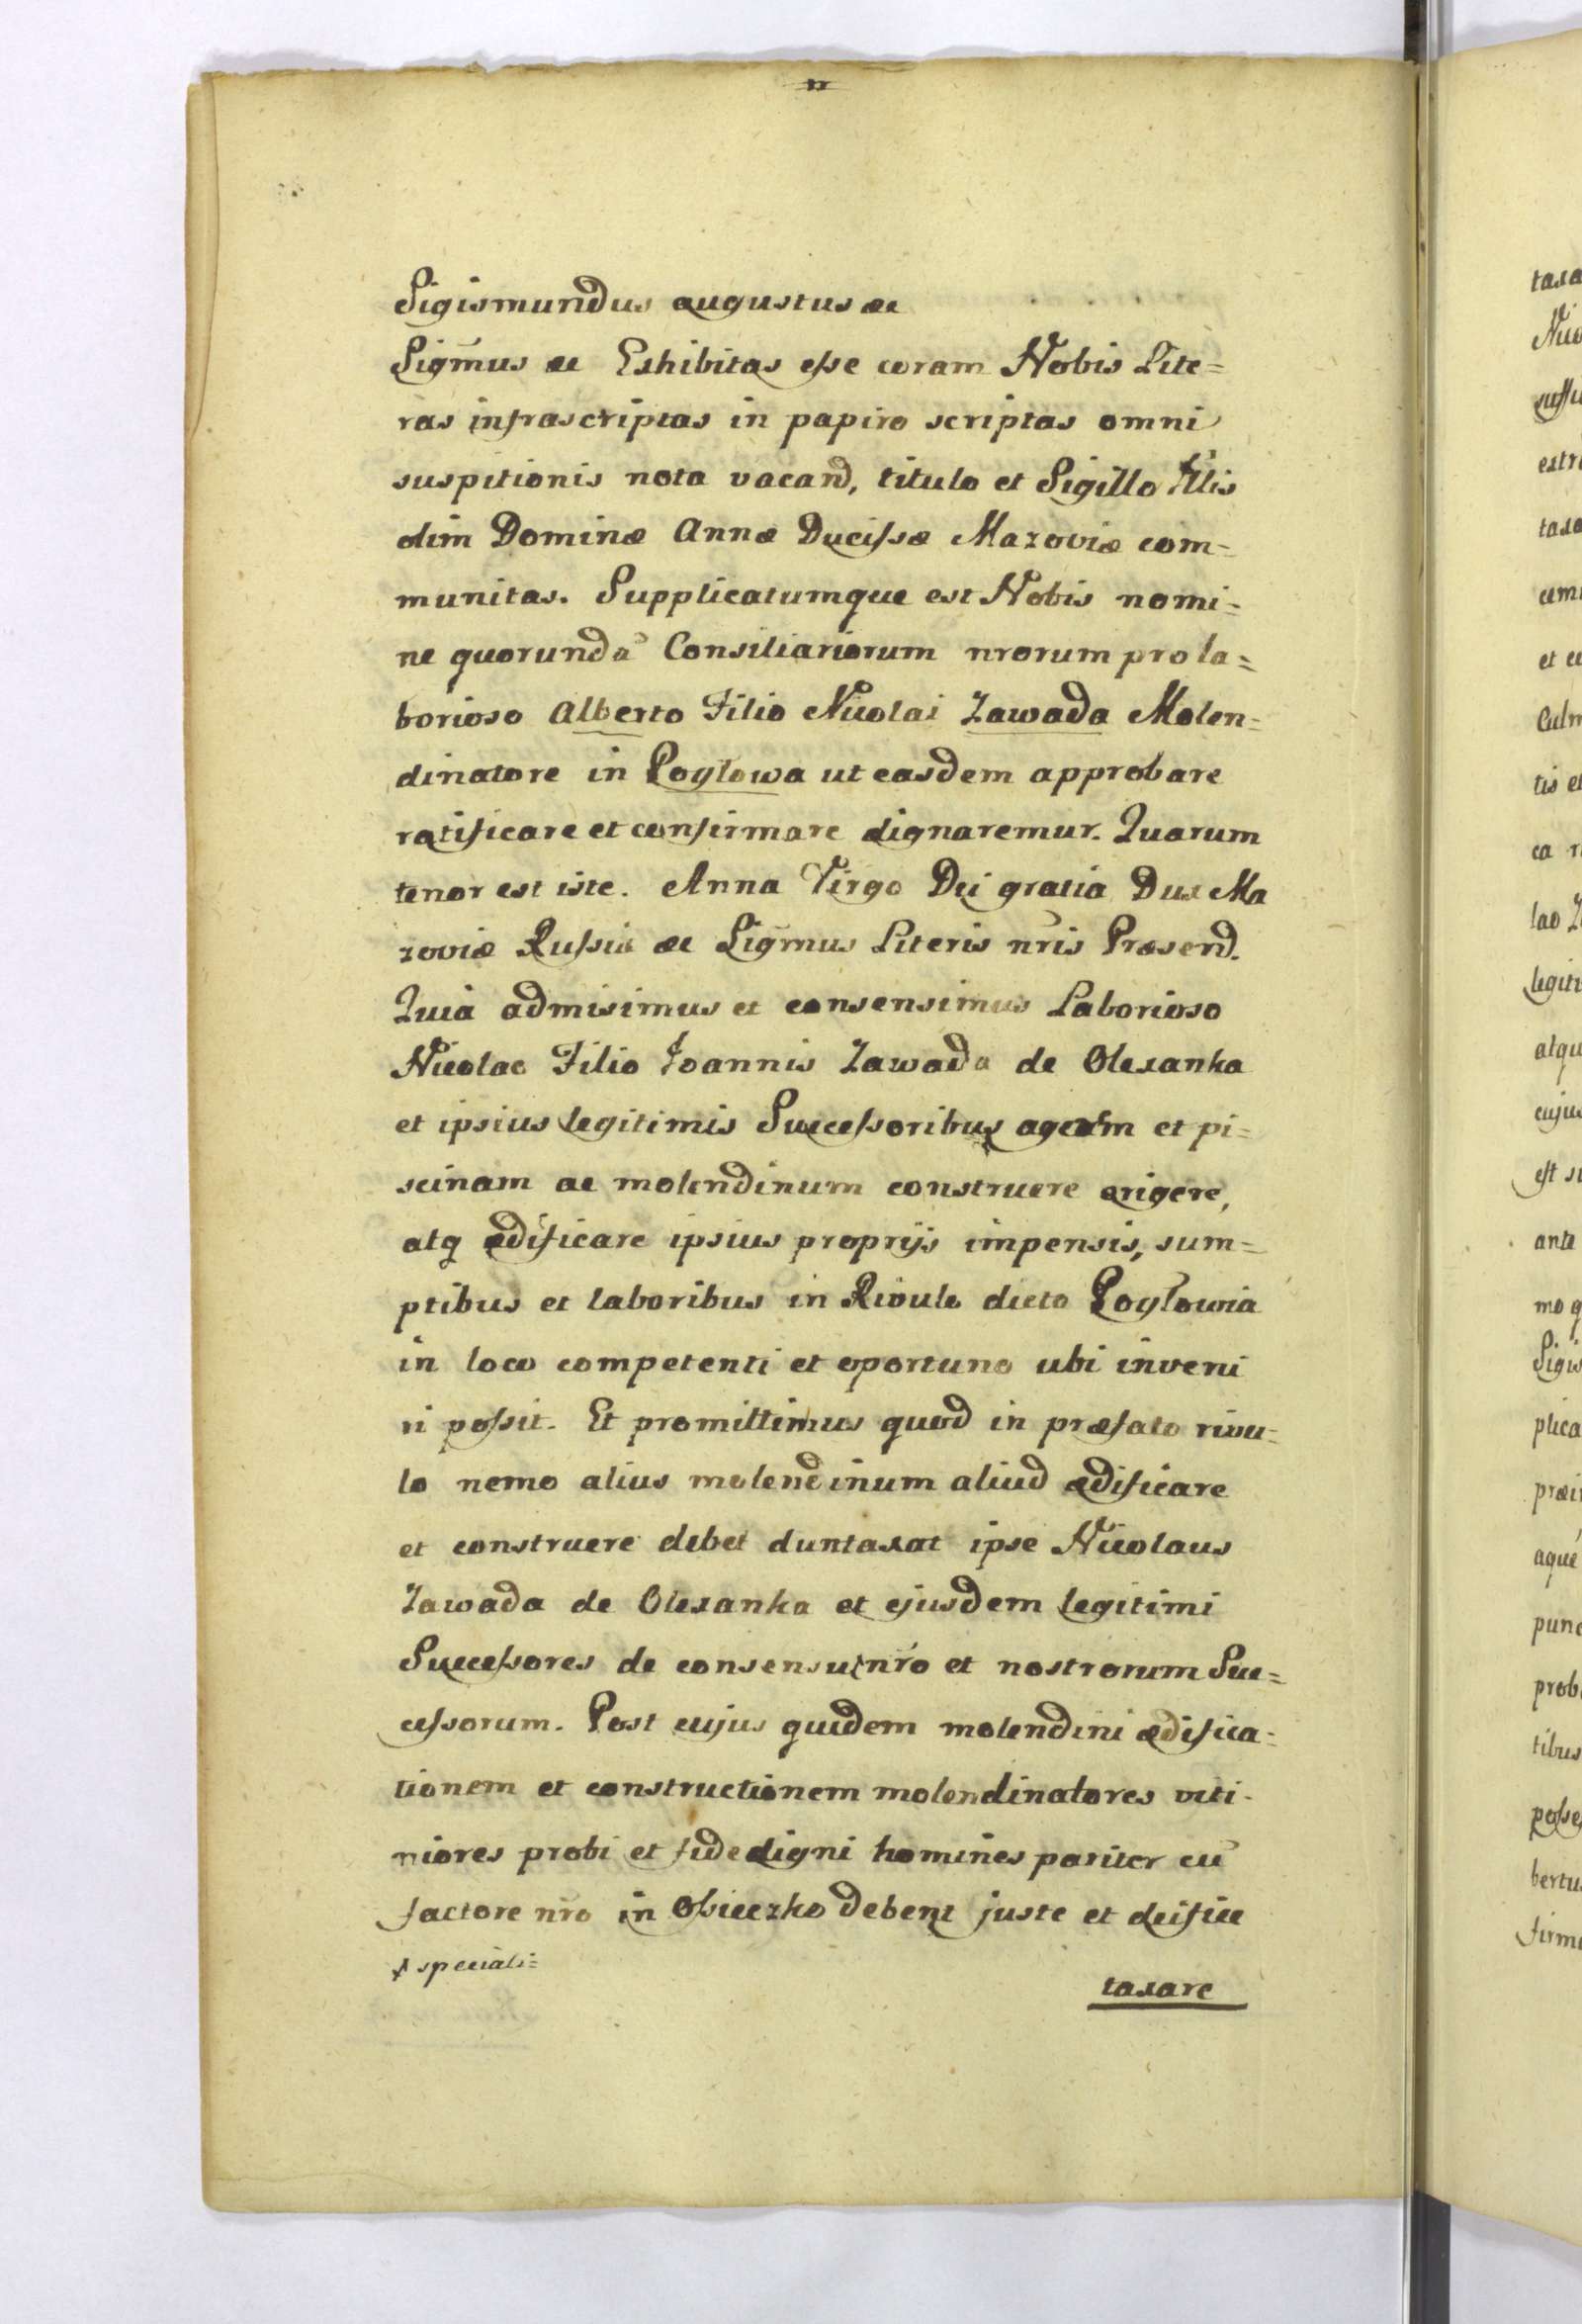 Sigismundus augustus &c
Sigmus &c Exhibitas esse coram Nobis Lite=
ras infrascriptas in papiro scriptas omni
suspitionis nota vacand, titulo et Sigillo Illis
olim Dominæ Annæ Ducissæ Mazoviæ com=
munitas. Supplicatumque est Nobis nomi=
ne quorunda Consiliariorum nrorum pro la=
borioso Alberto Filio Nicolai Zawada Molen=
dinatore in Poglowa ut easdem approbare
ratificare et confirmare dignaremur. Quarum
tenor est iste. Anna Virgo Dei gratia Dux Ma
zoviæ Russiæ &c Sigmus Literis nris Præsend.
Quia admisimus et consensimus Laborioso
Nicolao Filio Joannis Zawada de Olexanka
et ipsius legitimis Successoribus et pi=
scinam ac molendinum construere erigere,
atq ædificare ipsius proprijs impensis, sum=
ptibus et laboribus in Rivulo dicto Poglowia
in loco competenti et oportuno ubi inveni
ri possit. Et promittimus quod in præfato rivu=
lo nemo alius molendinum aliud ædificare
et construere debet duntaxat ipse Nicolaus
Zawada de Olexanka et ejusdem legitimi
Successores de consensu nro et nostrorum Suc=
cessorum. Post cujus quidem molendini ædifica=
tionem et constructionem molendinatores vici-
niores probi et fide digni homines pariter cu
factore nro in Osieczko debent juste et deifice
speciali=
taxare